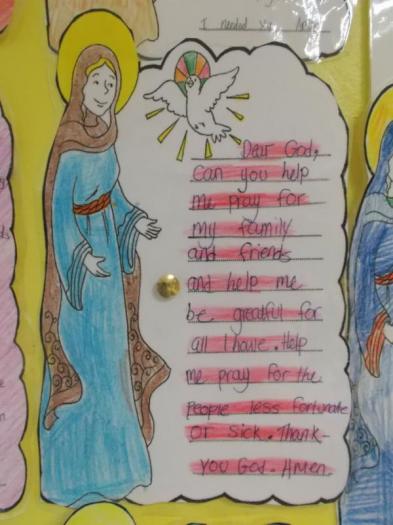 I needed
Dear God,
Can you help
me pray for
my family
and friends
and help me
be greatful for
all I have. Help
me pray for the
people less fortunate
or sick. Thank-
you God. Amen